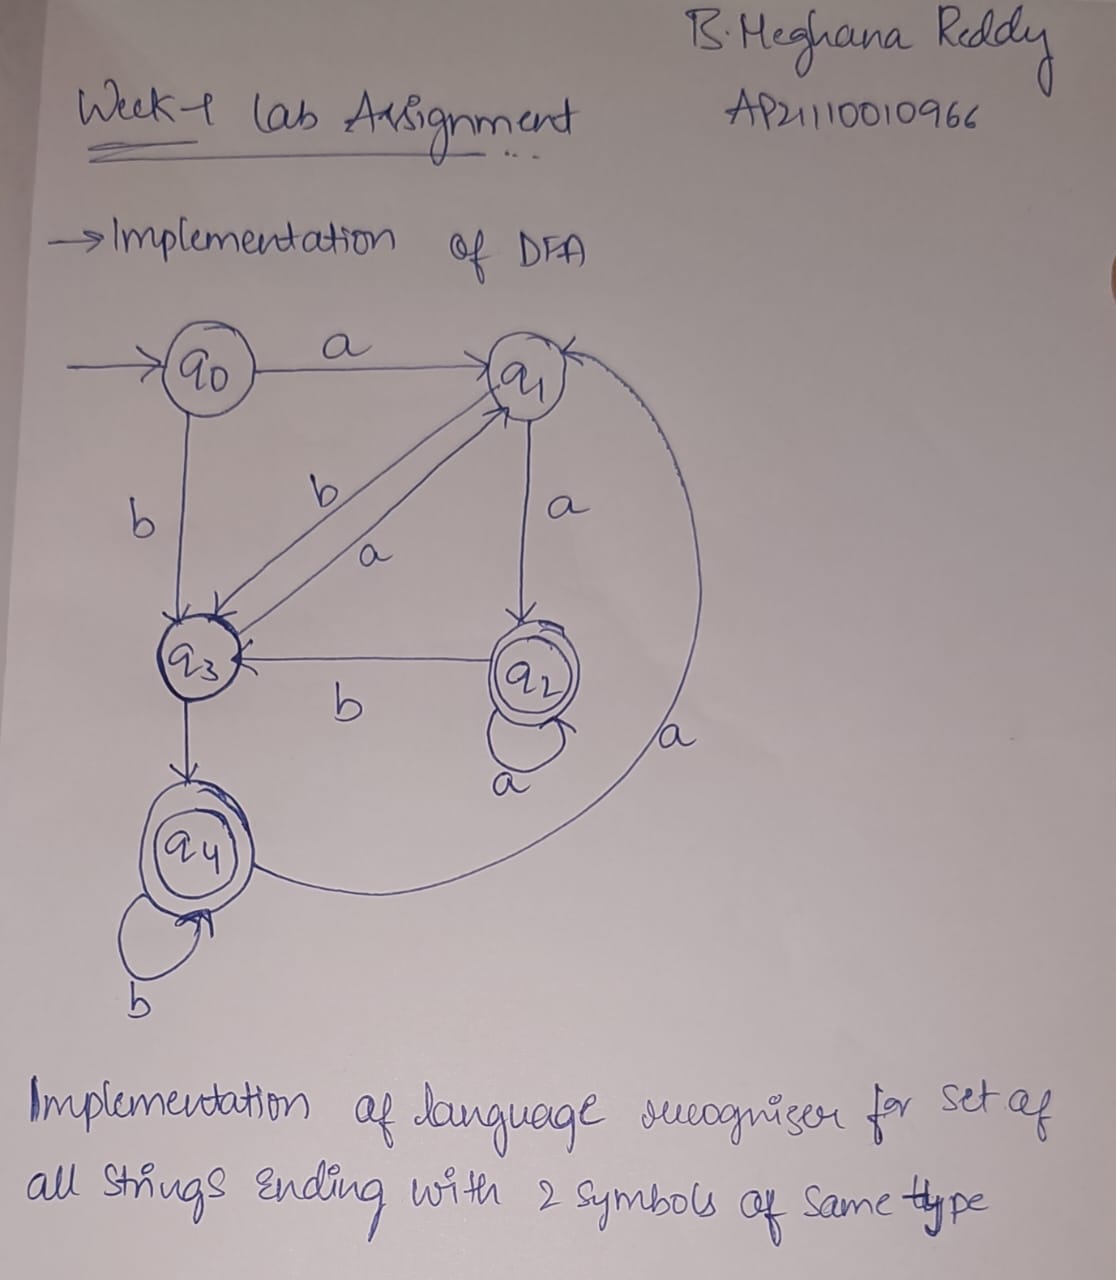 B. Meghana Reddy
Week-1 Lab Assignment
AP21110010966
→ Implementation of DFA
q0
a
q1
b
b
a
a
q3
b
q2
a
a
q4
b
Implementation of language recogniser for set of
all strings Ending with 2 symbols of same type